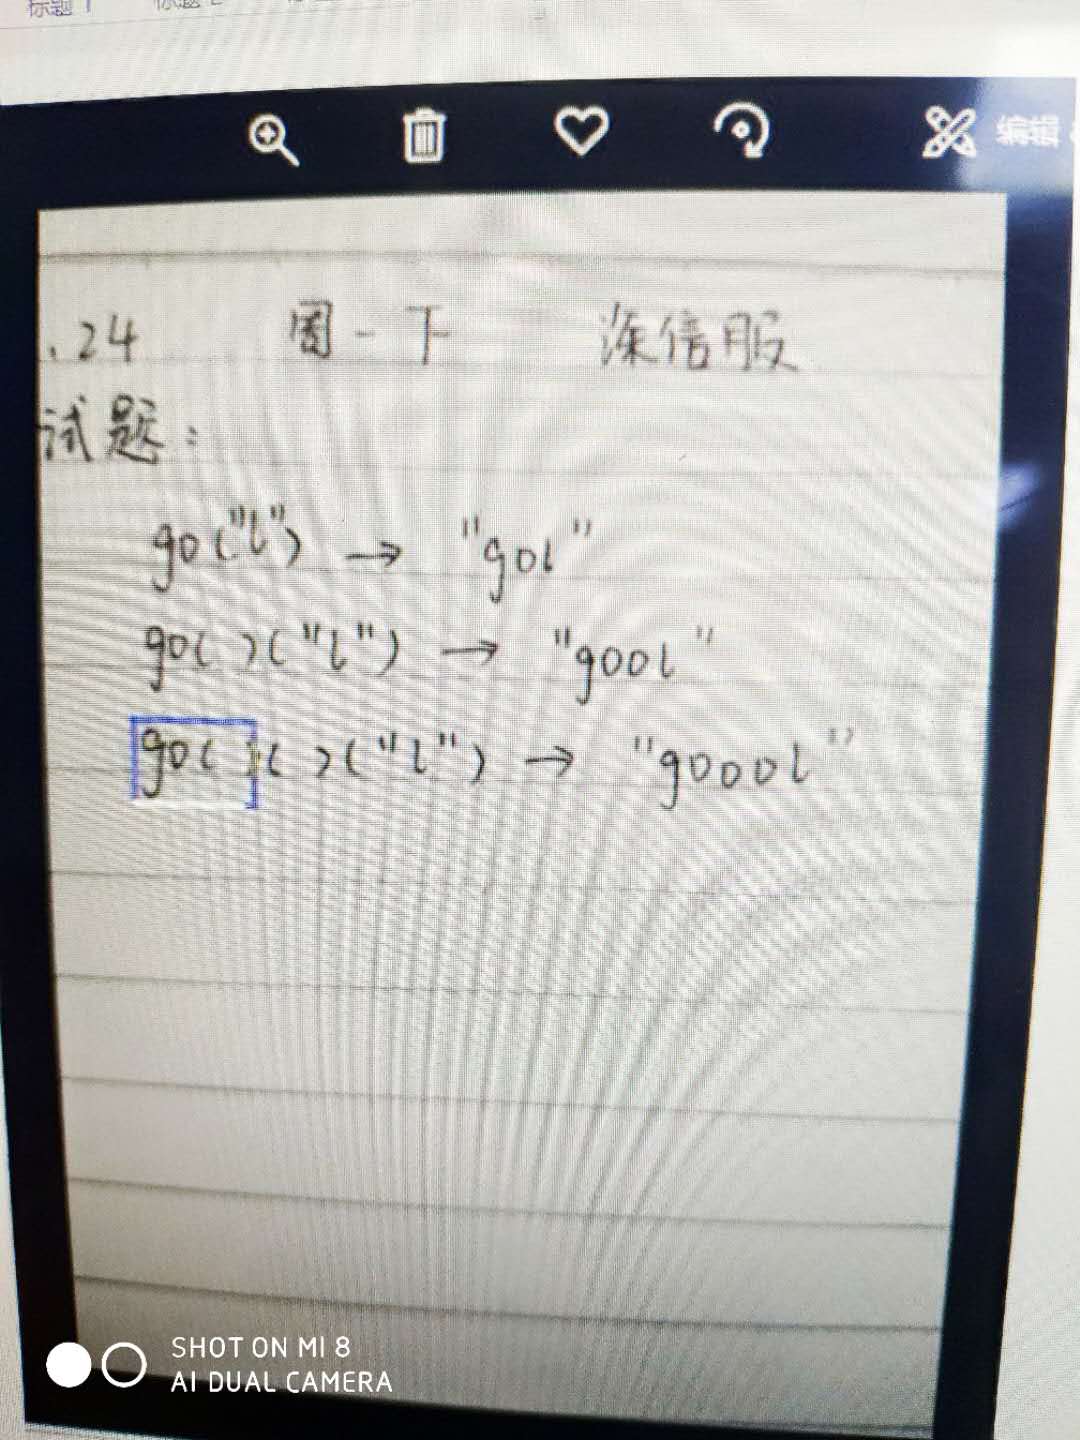 标题 1
编辑
.24 周一下 深信服
试题:
go("l") → "gol"
go()("l") → "gool"
go()()("l") → "goool"
SHOT ON MI 8
AI DUAL CAMERA